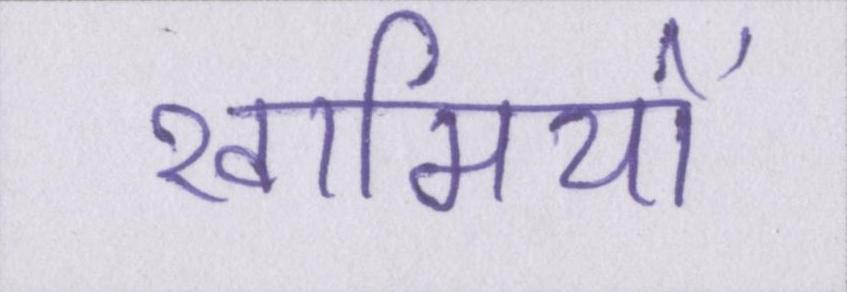 खामियों